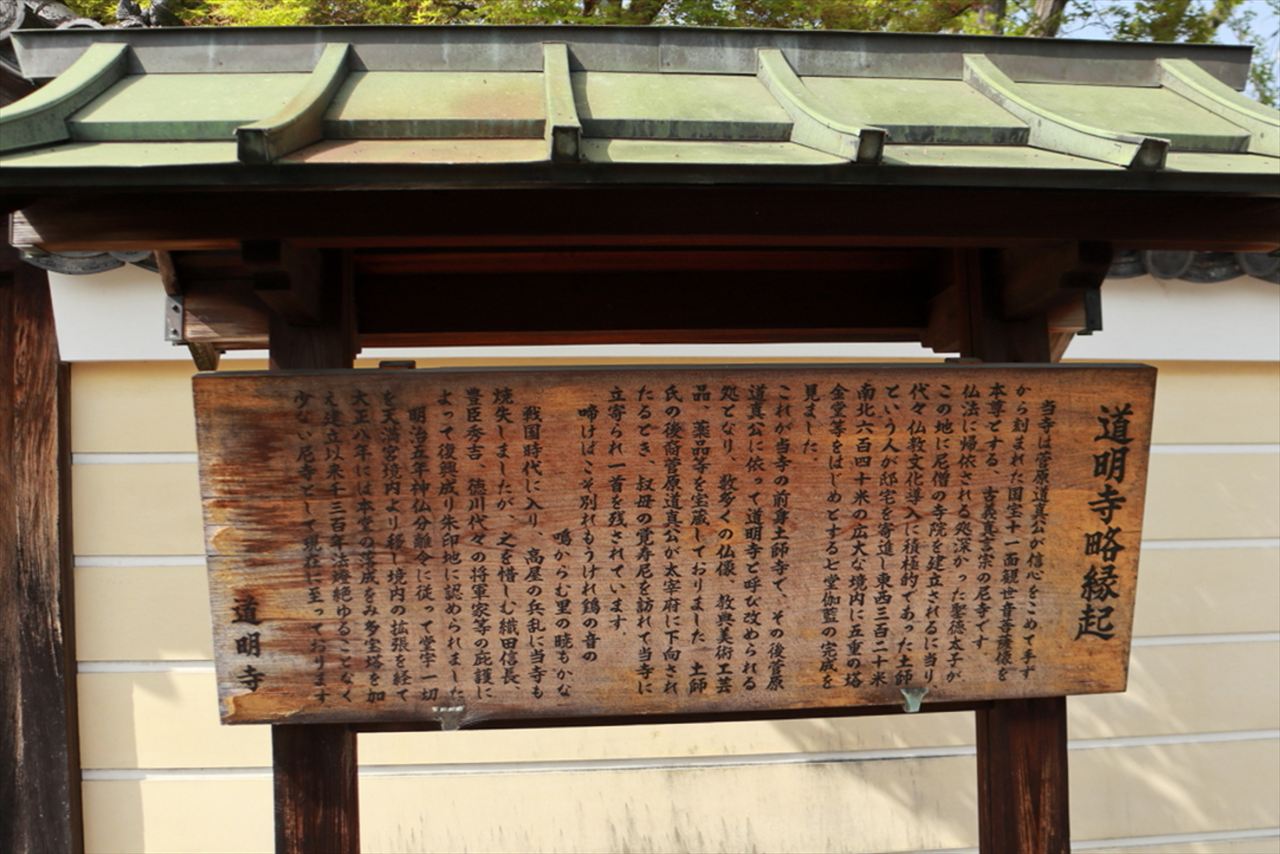 道明寺略縁起
当寺は菅原道真公が信心をこめて手ず
から刻まれた国宝十一面観世音菩薩様を
本尊とする、古義真言宗の尼寺です
仏法に帰依される処深かった聖徳太子が
この地に尼僧の寺院を建立されるに当り
代々仏教文化導入に積極的であった土師
という人が邸宅を寄進し東西三百二十米
南北六百四十米の広大な境内に五重の塔
金堂等をはじめとする七堂伽藍の完成を
見ました
これが当寺の前身土師寺で、その後菅原
道真公に依って道明寺と呼び改められる
処となり、数多くの仏像、教典美術工芸
品、薬品等を宝蔵しておりました 土師
氏の後裔菅原道真公が太宰府に下向され
たるとき、叔母の覚寿尼を訪れて当寺に
立寄られ一首を残されています。
啼けばこそ別れもうけれ鶏の音の
鳴からむ里の暁もかな
戦国時代に入り、高屋の兵乱に当寺も
焼失しましたが、之を惜しむ織田信長、
豊臣秀吉、徳川代々の将軍家等の庇護に
よって復興成り朱印地に認められました
明治五年神仏分離令に従って堂宇一切
を天満宮境内より移し境内の拡張を経て
大正八年には本堂の落成をみ多宝塔を加
え建立以来千三百年法燈絶ゆることなく
少ない尼寺として現在に至っております
道明寺